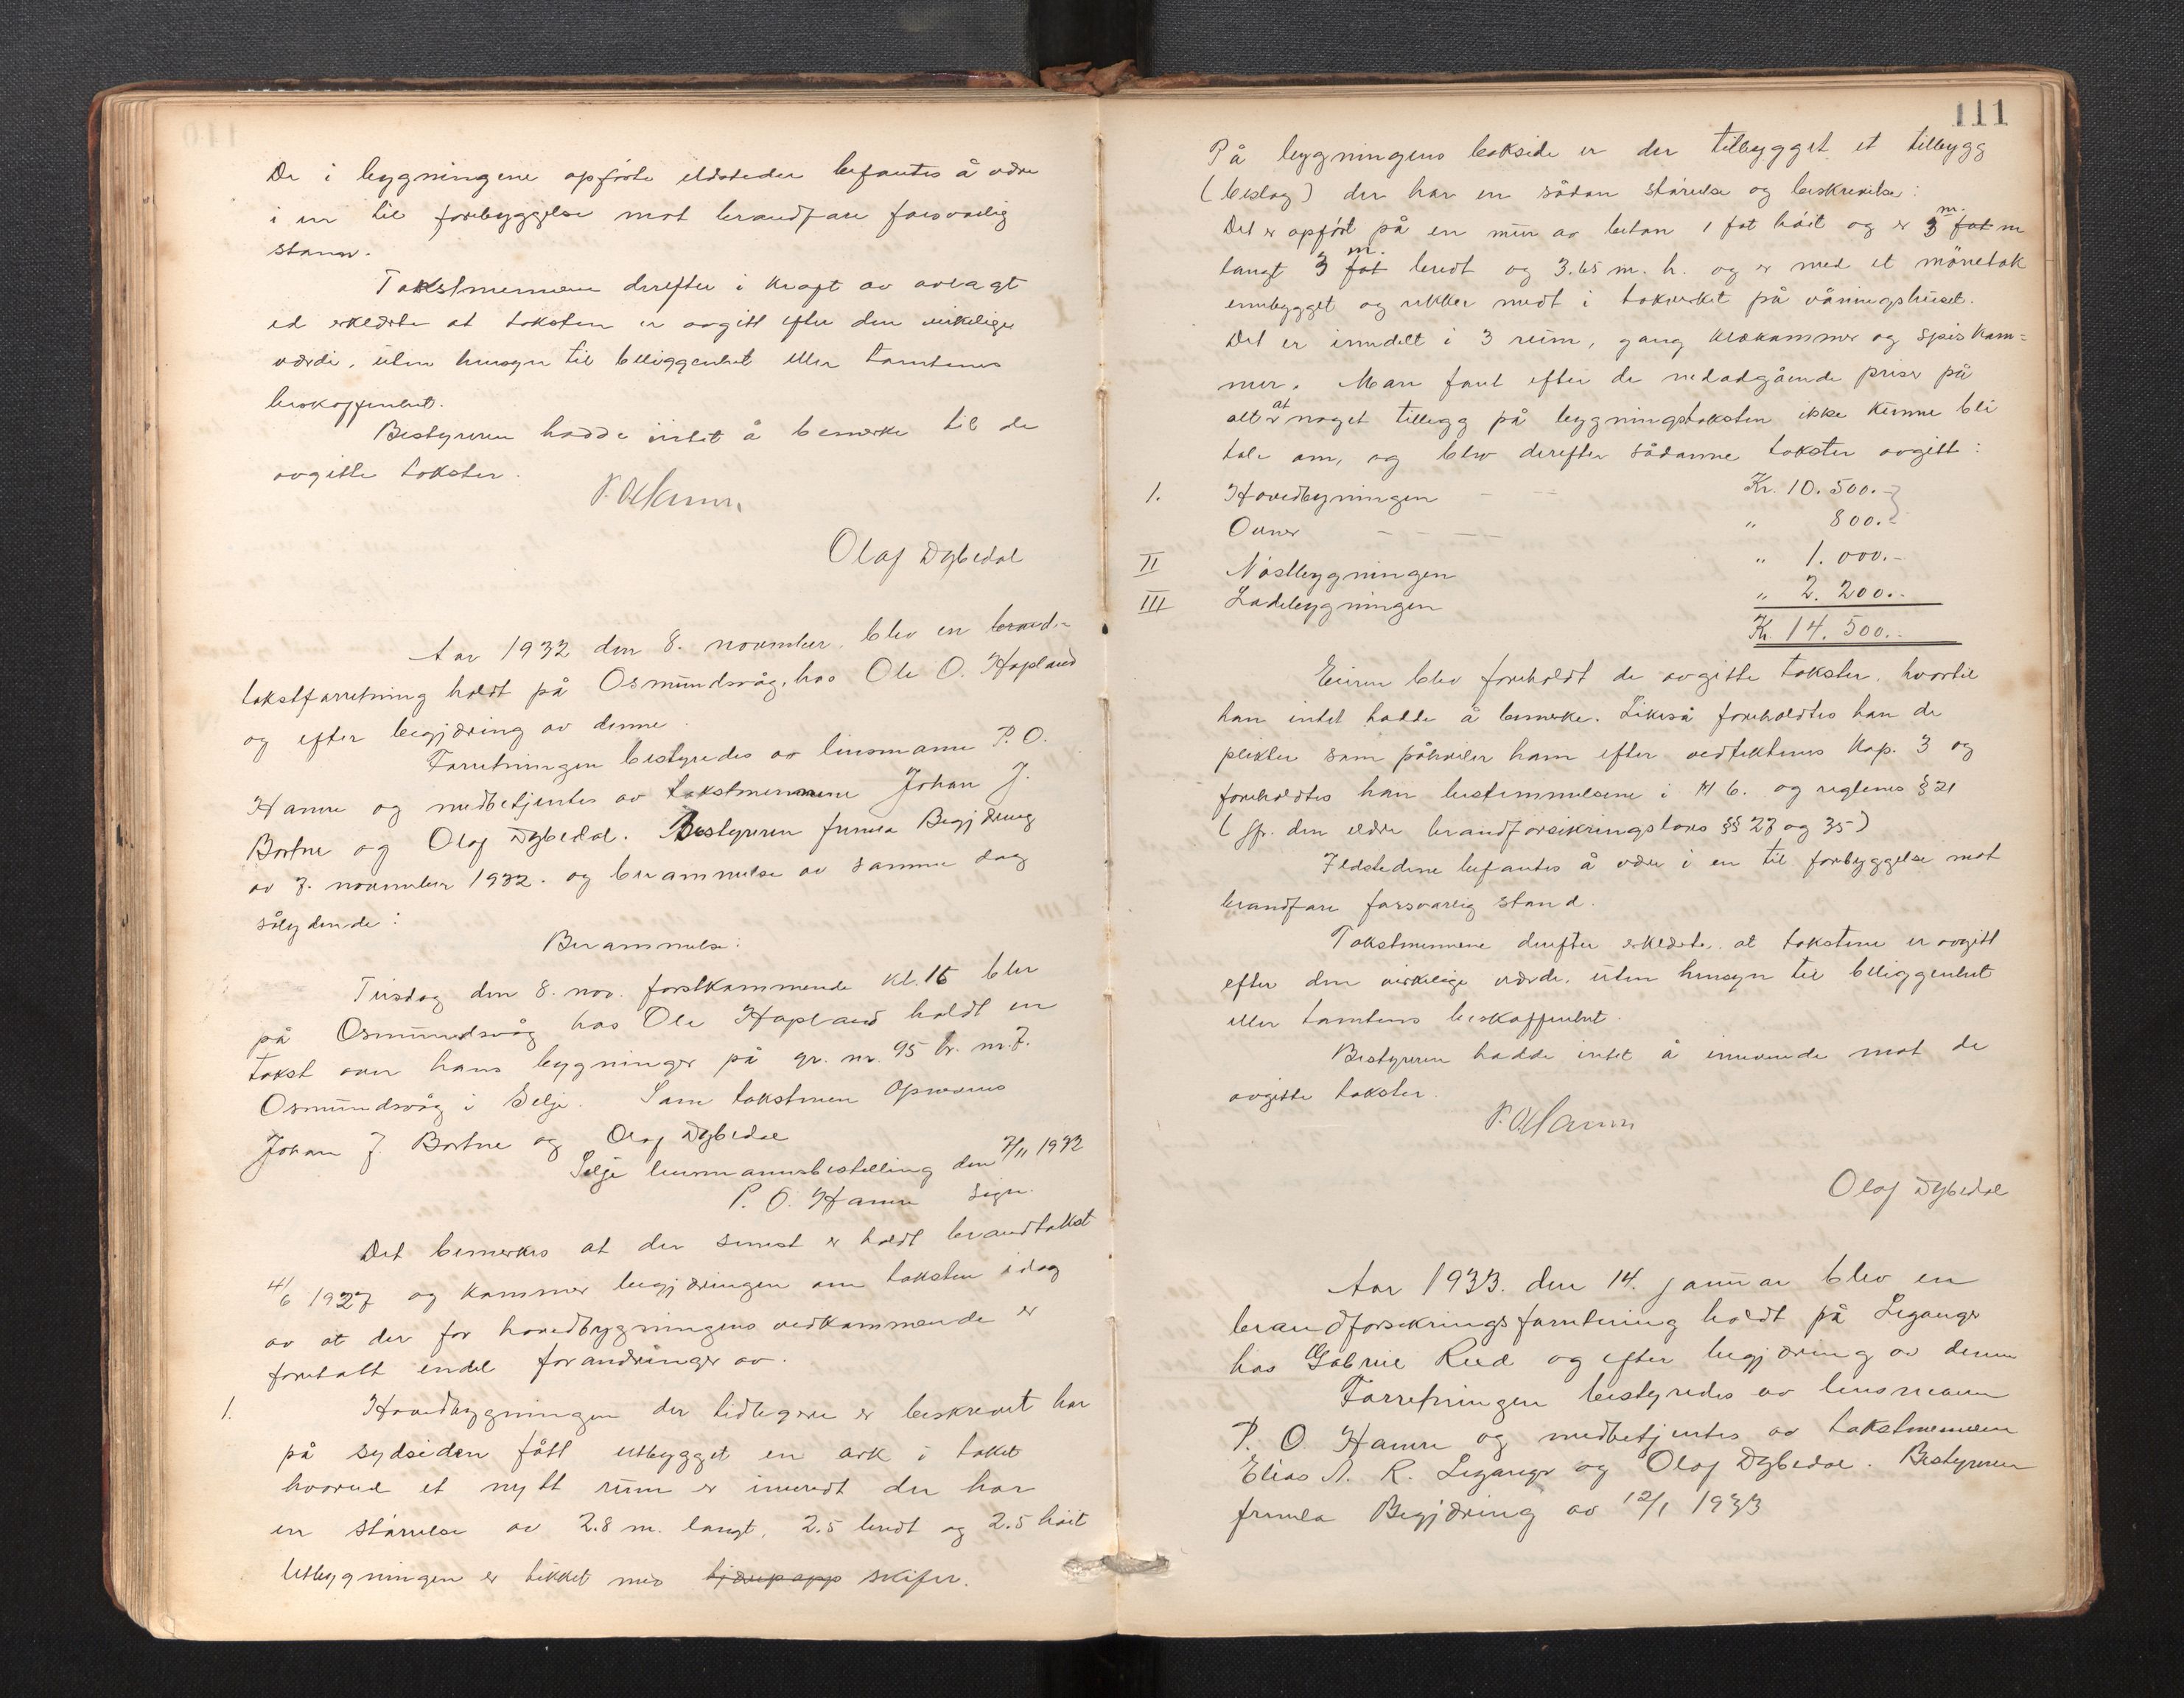 De i bygningene opførte ildsteder befantes å være
i en til forebyggelse mot brandfare forsvarlig
stand.
Takstmennene derefter i kraft av avlagt
ed erklærte at taksten er avgitt efter den virkelige
værdi, uten hensyn til beliggenhet eller tomtens
beskaffenhet.
Bestyreren hadde intet å bemerke til de
avgitte takster.
P. O. Hamre
Olaf Dybedal
Aar 1932 den 8. november, blev en brand-
takstforretning holdt på Osmundsvåg, hos Ole O. Hopland
og efter begjæring av denne.
Forretningen bestyredes av lensmann P. O.
Hamre og medbetjentes av takstmennene Johan J.
Bortne og Olaf Dybedal. Bestyreren fremla Begjæring
av 7. november 1932. og berammelse av samme dag
sålydende:
Berammelse:
Tirsdag den 8. nov. førstkommende kl. 16 blir
på Osmundsvåg hos Ole Hopland holdt en
takst over hans bygninger på gr. nr. 95 br. nr. 7.
Osmundsvåg i Selje. Som takstmenn opnevnes
Johan J. Bortne og Olaf Dybedal
Selje lensmannsbestilling den 7/11 1932
P. O. Hamre sign.
Det bemerkes at der senest er holdt brandtakst
4/6 1927 og kommer begjæringen om taksten idag
av at der for hovedbygningens vedkommende er
foretatt endel forandringer av.
1. Hovedbygningen der tidligere er beskrevet har
på sydsiden fått utbygget en ark i taket
hvorved et nytt rum er innredt der har
en størrelse av 2.8 m. langt, 2.5 bredt og 2.5 høit
Utbygningen er tekket med tjærepapp skifer.
111
På bygningens bakside er der tilbygget et tilbygg
(beslag) der har en sådan størrelse og beskrivelse:
Det er opført på en mur av betan 1 fot høit og er 3 m. fot m
langt 3 m. fot bredt og 3.65 m. h. og er med et mønetak
ennbygget og rekker nedt i takverket på våningshuset.
Det er inndelt i 3 rum, gang klækammer og spiskam=
mer. Man fant efter de nedadgående priser på
alt at noget tillegg på bygningstaksten ikke kunne bli
tale om, og blev derefter sådanne takster avgitt:
1. Hovedbyningen - -- Kr. 10.500.-
Ovner - - -- " 800.-
II Nøstbygningen " 1.000.-
III Ladebygningen " 2.200.-
Kr. 14.500.-
Eieren blev foreholdt de avgitte takster, hvortil
han intet hadde å bemerke. Likeså foreholdtes han de
plikter som påhviler ham efter vedtektenes Kap. 3 og
foreholdtes han bestemmelsene i M 6. og reglenes § 21
(jfr. den eldre brandforsikringslovs §§ 27 og 35)
Ildstedene befantes å være i en til forbyggelse mot
brandfare forsvarlig stand.
Takstmennene derefter erklærte, at takstene er avgitt
efter den virkelige værde, uten hensyn til beliggenhet
eller tomtens beskaffenhet.
Bestyreren hadde intet å innvende mot de
avgitte takster.
P. O. Hamre
Olaf Dybedal
Aar 1933. den 14. januar blev en
brandforsikringsforretning holdt på Leganger
hos Gabriel Reed og efter begjæring av denne
Forretningen bestyredes av lensmann
P. O. Hamre og medbetjentes av takstmennene
Elias A. R. Leganger og Olaf Dybedal. Bestyreren
fremla Begjæring av 12/1 1933